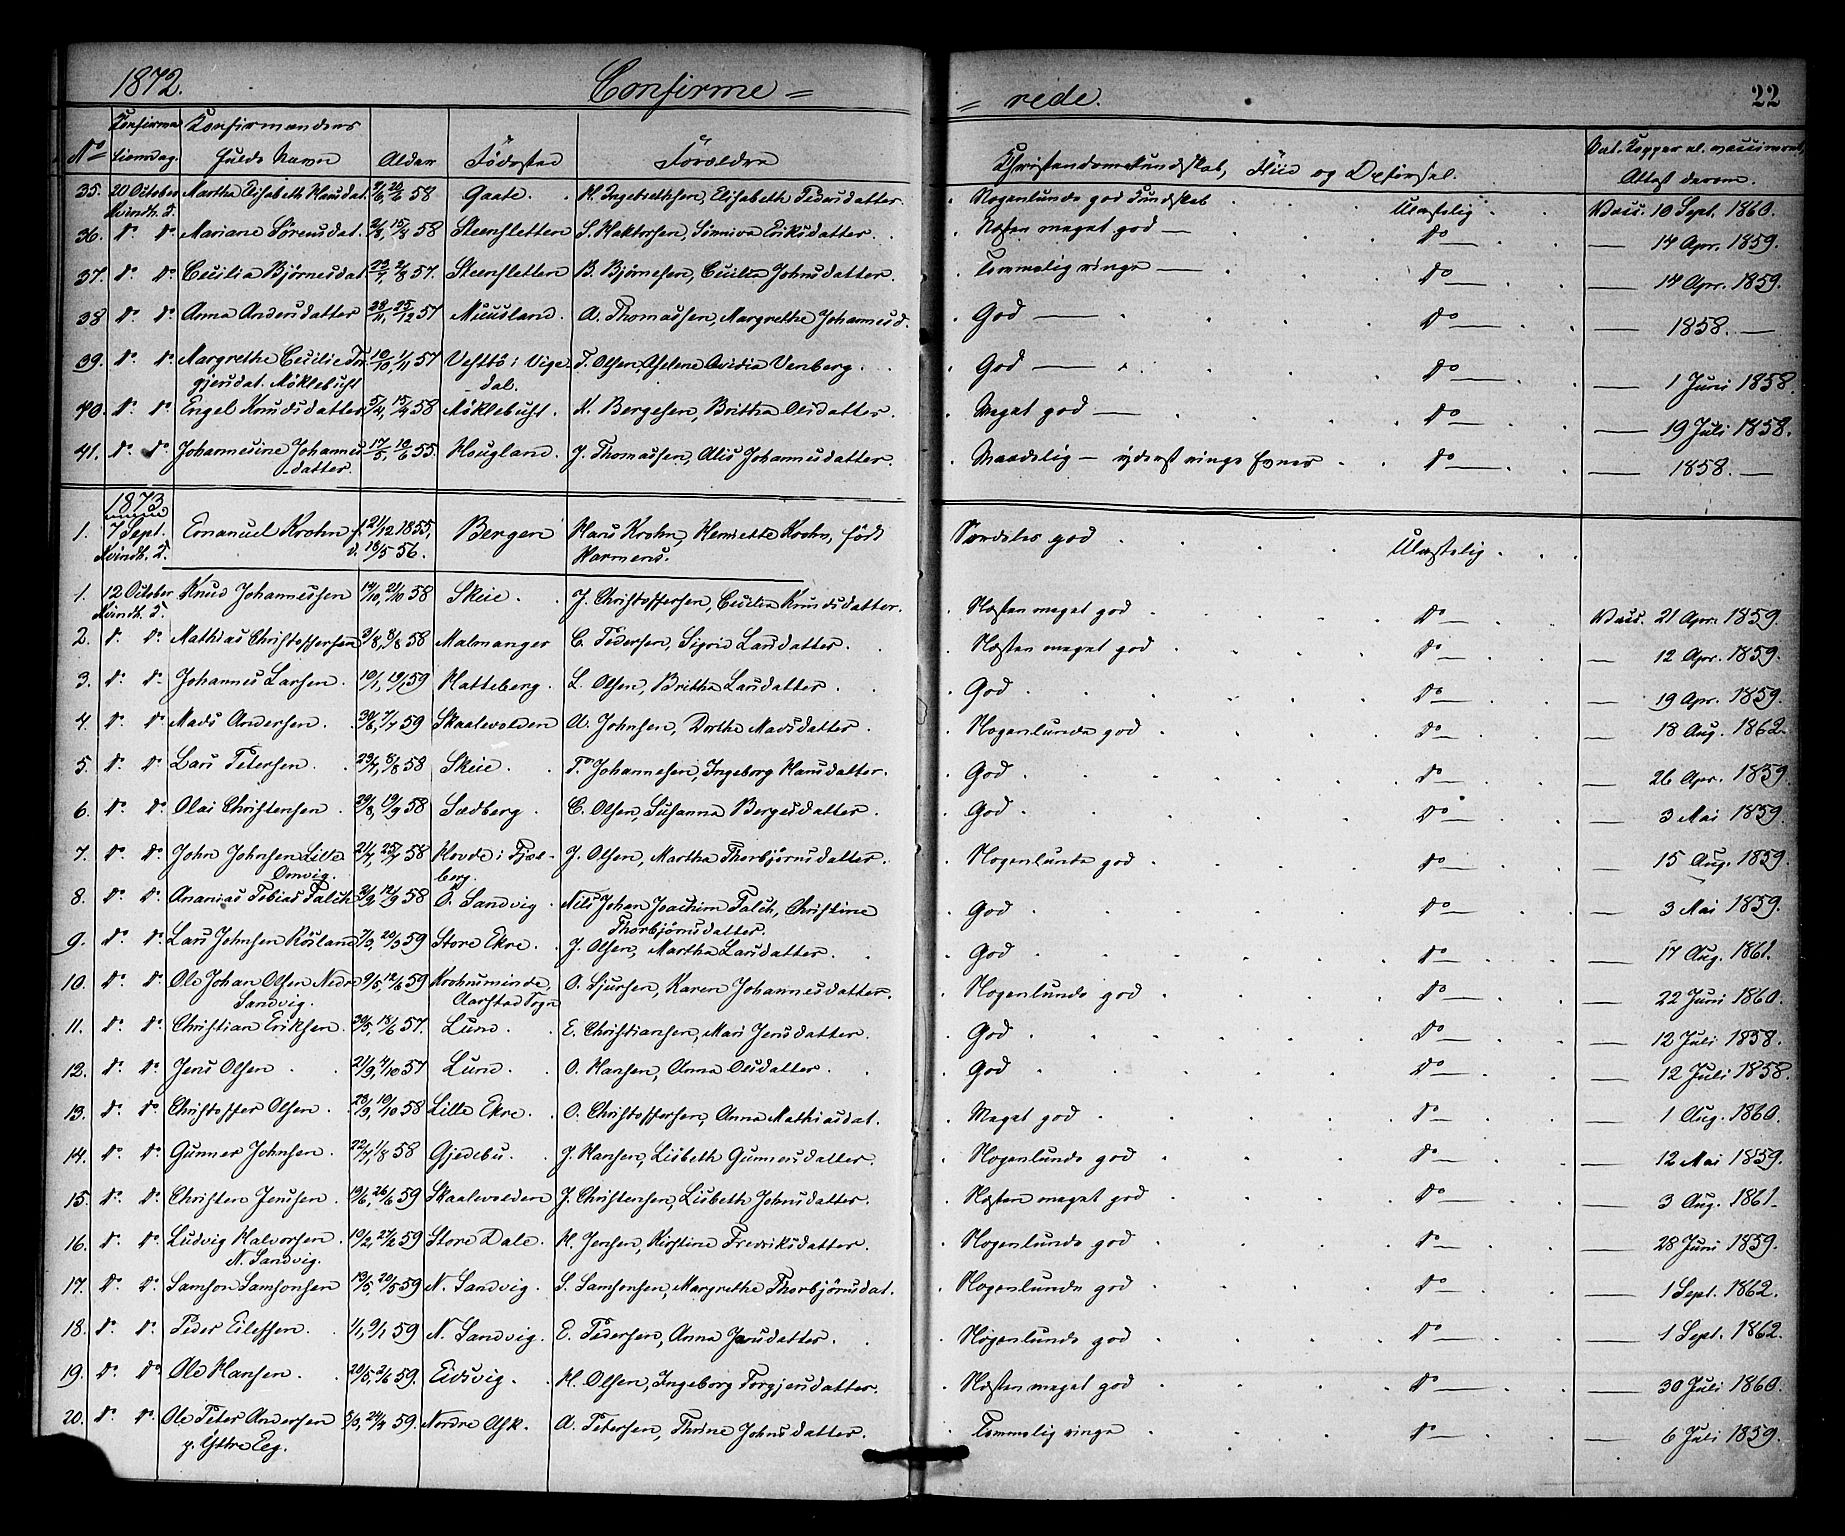 1872. Confirme = = rede. 22
No Confirma tionsdag. Konfirmandens fulde Navn Alder Fødested Forældre Christendomskundskab, Fliid og Opførsel. Nat. Kopper el. vaccineret, Attest derom.
35. 20 October Martha Elisabeth Hansdat. 9/6, 58 Gaate. H. Ingebrethsen, Elisabeth Pedersdatter. Nogenlunde god Kundskab Ulastelig Vacc. 10 Sept. 1860.
Kvindh. S.
36. do do Mariane Sørensdat. 15/8 58 Steensletten S. Haktorsen, Sønniva Eriksdatter. Næsten meget god — do — 14 Apr. 1859.
37. do do Cecilia Bjørnesdat. 23/7, 2/8 57. Steensletten B. Bjørnesen, Cecilia Johnsdatter. Temmelig ringe — do — 14 Apr. 1859.
38 do do Anna Andersdatter 28/11, 25/12 57 Muusland. A. Thomassen, Margrethe Johannesd. God — do — 1858. —
39. do do Margrethe Cecilie Tor 10/10, 1/11 57 Vestbø i Vige T. Olsen, Helene Ovidia Venberg. God — do — 1 Juni 1858.
gjersdat. Møklebust dal.
40. do do Engel Knudsdatter 5/4, 15/4 58 Møklebust. K. Bergesen, Britha Olsdatter. Meget god — do — 19 Juli 1858.
41. do do Johannesine Johannes 17/5, 10/6 55. Hougland. J. Thomassen, Alis Johannesdatter. Maadelig — yderst ringe Evner do — 1858. —
datter.
1873
1. 7 Sept. Emanuel Krohn f. 21/12 1855, Bergen Hans Krohn, Henriette Krohn, født Særdeles god Ulastelig
Kvindh. S. d. 18/5 56. Harmens.
1. 12 October Knud Johannessen 14/10, 21/10 58 Skeie. J. Christoffersen, Cecilia Knudsdatter. Næsten meget god do — Vacc. 21 Apr. 1859.
Kvindh. S.
2. do do Mathias Christoffersen 3/8, 8/8 58 Malmanger C. Pedersen, Sigrid Larsdatter. Næsten meget god do — 12 Apr. 1859.
3. do do Johannes Larsen. 10/1, 19/1 59 Hatteberg. L. Olsen, Britha Larsdatter. God do — 19 Apr. 1859.
4. do do Mads Andersen. 30/6, 7/7 59 Skaalevolden A. Johnsen, Dorthe Madsdatter. Nogenlunde god do — 18 Aug. 1862.
5. do do Lars Petersen. 23/7, 8/8 58 Skeie. P. Johannesen, Ingeborg Hansdatter. God do — 26 Apr. 1859.
6. do do Olai Christensen 29/8, 19/9 58 Sædberg. C. Olsen, Susanna Bergesdatter. God do — 3 Mai 1859.
7. do do John Johnsen Lille 21/7, 25/7 58 Hovde i Fjel- J. Olsen, Martha Thorbjørnsdatter. Nogenlunde god do — 15 Aug. 1859.
Omvig. berg.
8. do do Ananias Tobias Falch 2/9, 12/9 58 Ø. Sandvig. Nils Johan Joachim Falch, Christine God do — 3 Mai 1859.
Thorbjørnsdatter.
9. do do Lars Johnsen Røsland 7/3, 20/3 59 Store Ekre. J. Olsen, Martha Larsdatter. God do — 17 Aug. 1861.
10. do do Ole Johan Olsen Nedre 9/5, 12/6 59 Krohnsminde, O. Sjursen, Karen Johannesdatter. Nogenlunde god do — 22 Juni 1860.
Sandvig. Aarstad Sogn
11. do do Christian Eriksen. 30/5, 18/6 57. Lund. E. Christiansen, Mari Jensdatter. God do — 12 Juli 1858.
12. do do Jens Olsen 21/9, 4/10 57 Lund. O. Hansen, Anna Olsdatter. God do — 12 Juli 1858.
13. do do Christoffer Olsen. 23/9, 10/10 58 Lille Ekre. O. Christoffersen, Anna Mathiasdat. Meget god do — 1 Aug. 1860.
14. do do Gunner Johnsen. 22/7, 1/8 58 Gjedebu. J. Hansen, Lisbeth Gunnersdatter. Nogenlunde god do — 12 Mai 1859.
15. do do Christen Jensen. 19/6, 26/6 59 Skaalevolden J. Christensen, Lisbeth Johnsdatter. Næsten meget god do — 3 Aug. 1861.
16. do do Ludvig Halvorsen. 19/2, 27/2 59 Store Dale. H. Jensen, Kirstine Fredriksdatter. Nogenlunde god do — 28 Juni 1859.
N. Sandvig.
17. do do Samson Samsonsen 13/5, 20/5 59 N. Sandvig. S. Samsonsen, Margrethe Thorbjørnsdat. Nogenlunde god do — 1 Sept. 1862.
18. do do Peder Eilefsen. 1/1, 9/1 59 N. Sandvig. E. Pedersen, Anna Jansdatter. Nogenlunde god do — 1 Sept. 1862.
19. do do Ole Hansen. 20/5, 2/6 59. Eidsvig. H. Olsen, Ingeborg Torgjersdatter. Næsten meget god do — 30 Juli 1860.
20. do do Ole Peter Andersen 8/3, 24/4 59. Nordre Ask. A. Petersen, Thrine Johnsdatter. Temmelig ringe do — 6 Juli 1859.
p. Yttre Eeg.